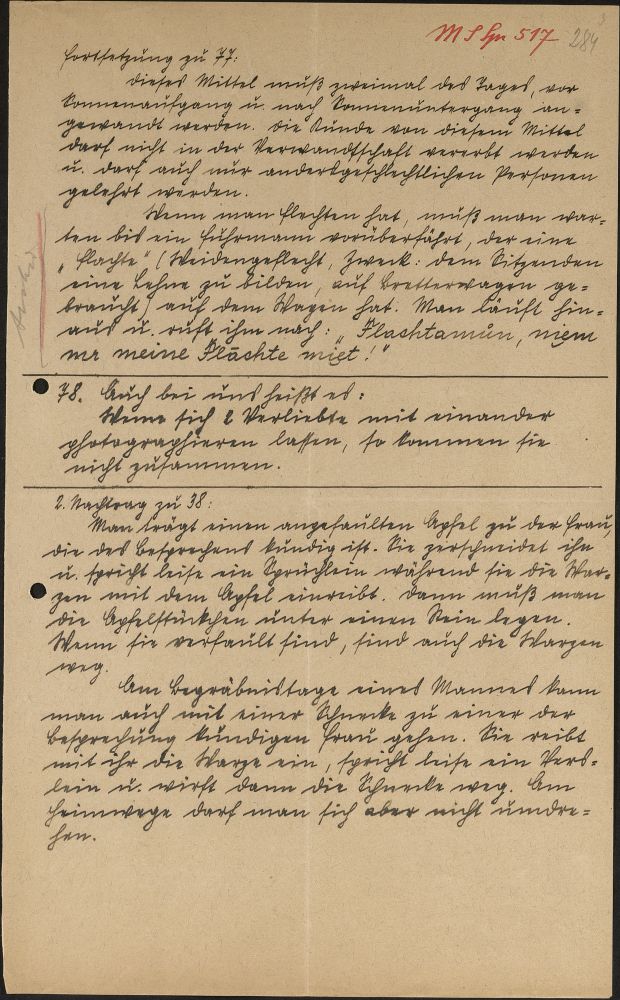 MSgn 517 284
Fortsetzung zu 77:
Dieses Mittel muß zweimal des Tages, vor
Sonnenaufgang u. nach Sonnenuntergang an=
gewandt werden. Die Kunde von diesem Mittel
darf nicht in der Verwandtschaft vererbt werden
u. darf auch nur andersgeschlechtlichen Personen
gelehrt werden.
Wenn man Flechten hat, muß man war-
ten bis ein Fuhrmann vorüberfährt, der eine
"Flachte" (Weidengeflecht, Zweck: dem Sitzenden
eine Lehne zu bilden, auf Bretterwagen ge=
braucht) auf dem Wagen hat. Man läuft hin=
aus u. ruft ihm nach: "Flachtamůn, niem
mr meine Flāchte miet!"
78. Auch bei uns heißt es:
Wenn sich 2 Verliebte mit einander
photographieren lassen, so kommen sie
nicht zusammen.
2. Nachtrag zu 38:
Man trägt einen angefaulten Apfel zu der Frau,
die des Besprechens kundig ist. Sie zerschneidet ihn
u. spricht leise ein Sprüchlein während sie die War=
zen mit dem Apfel einreibt. Dann muß man
die Apfelstückchen unter einen Stein legen.
Wenn sie verfault sind, sind auch die Warzen
weg.
Am Begräbnistage eines Mannes kann
man auch mit einer Schnecke zu einer der
Besprechung kundigen Frau gehen. Sie reibt
mit ihr die Warze ein, spricht leise ein Vers=
lein u. wirft dann die Schnecke weg. Am
Heimwege darf man sich aber nicht umdre=
hen.